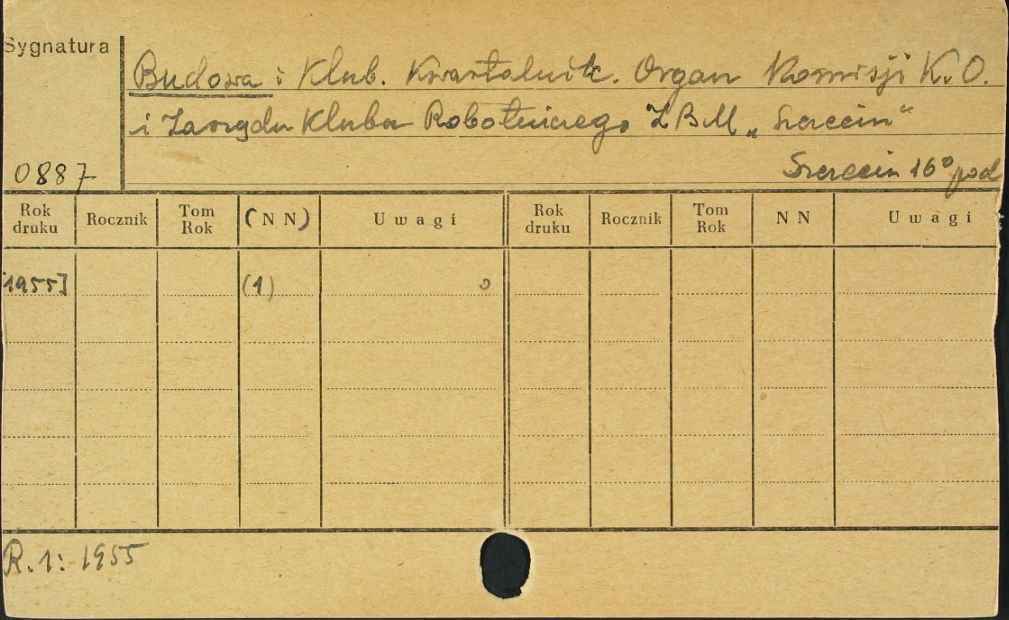 Sygnatura
Budowa i Klub. Kwartalnik. Organ Komisji K.O.
i Zarządu Klubu Robotniczego ZBM „Szczecin"
0887
Szczecin 16° pod
Rok druku Rocznik Tom Rok (NN) Uwagi Rok druku Rocznik Tom Rok NN Uwagi
1955] (1)
R. 1: 1955